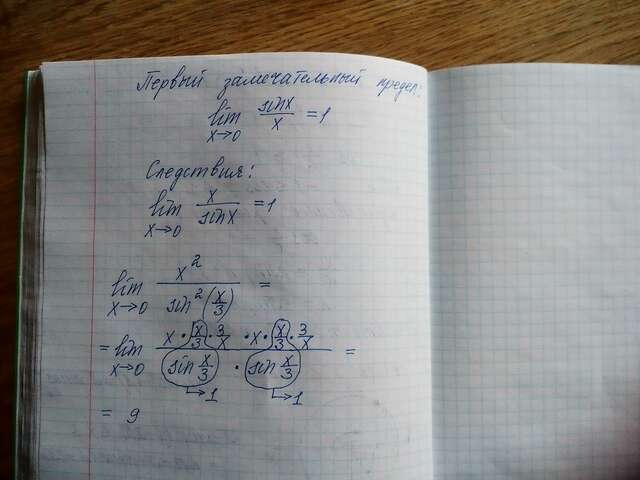 Первый замечательный предел:
lim x→0 sinx/x = 1
Следствия:
lim x→0 x/sinx = 1
lim x→0 x²/sin²(x/3) =
= lim x→0 x · x/3 · 3/x · x · x/3 · 3/x / sin x/3 · sin x/3 =
→1 →1
= 9